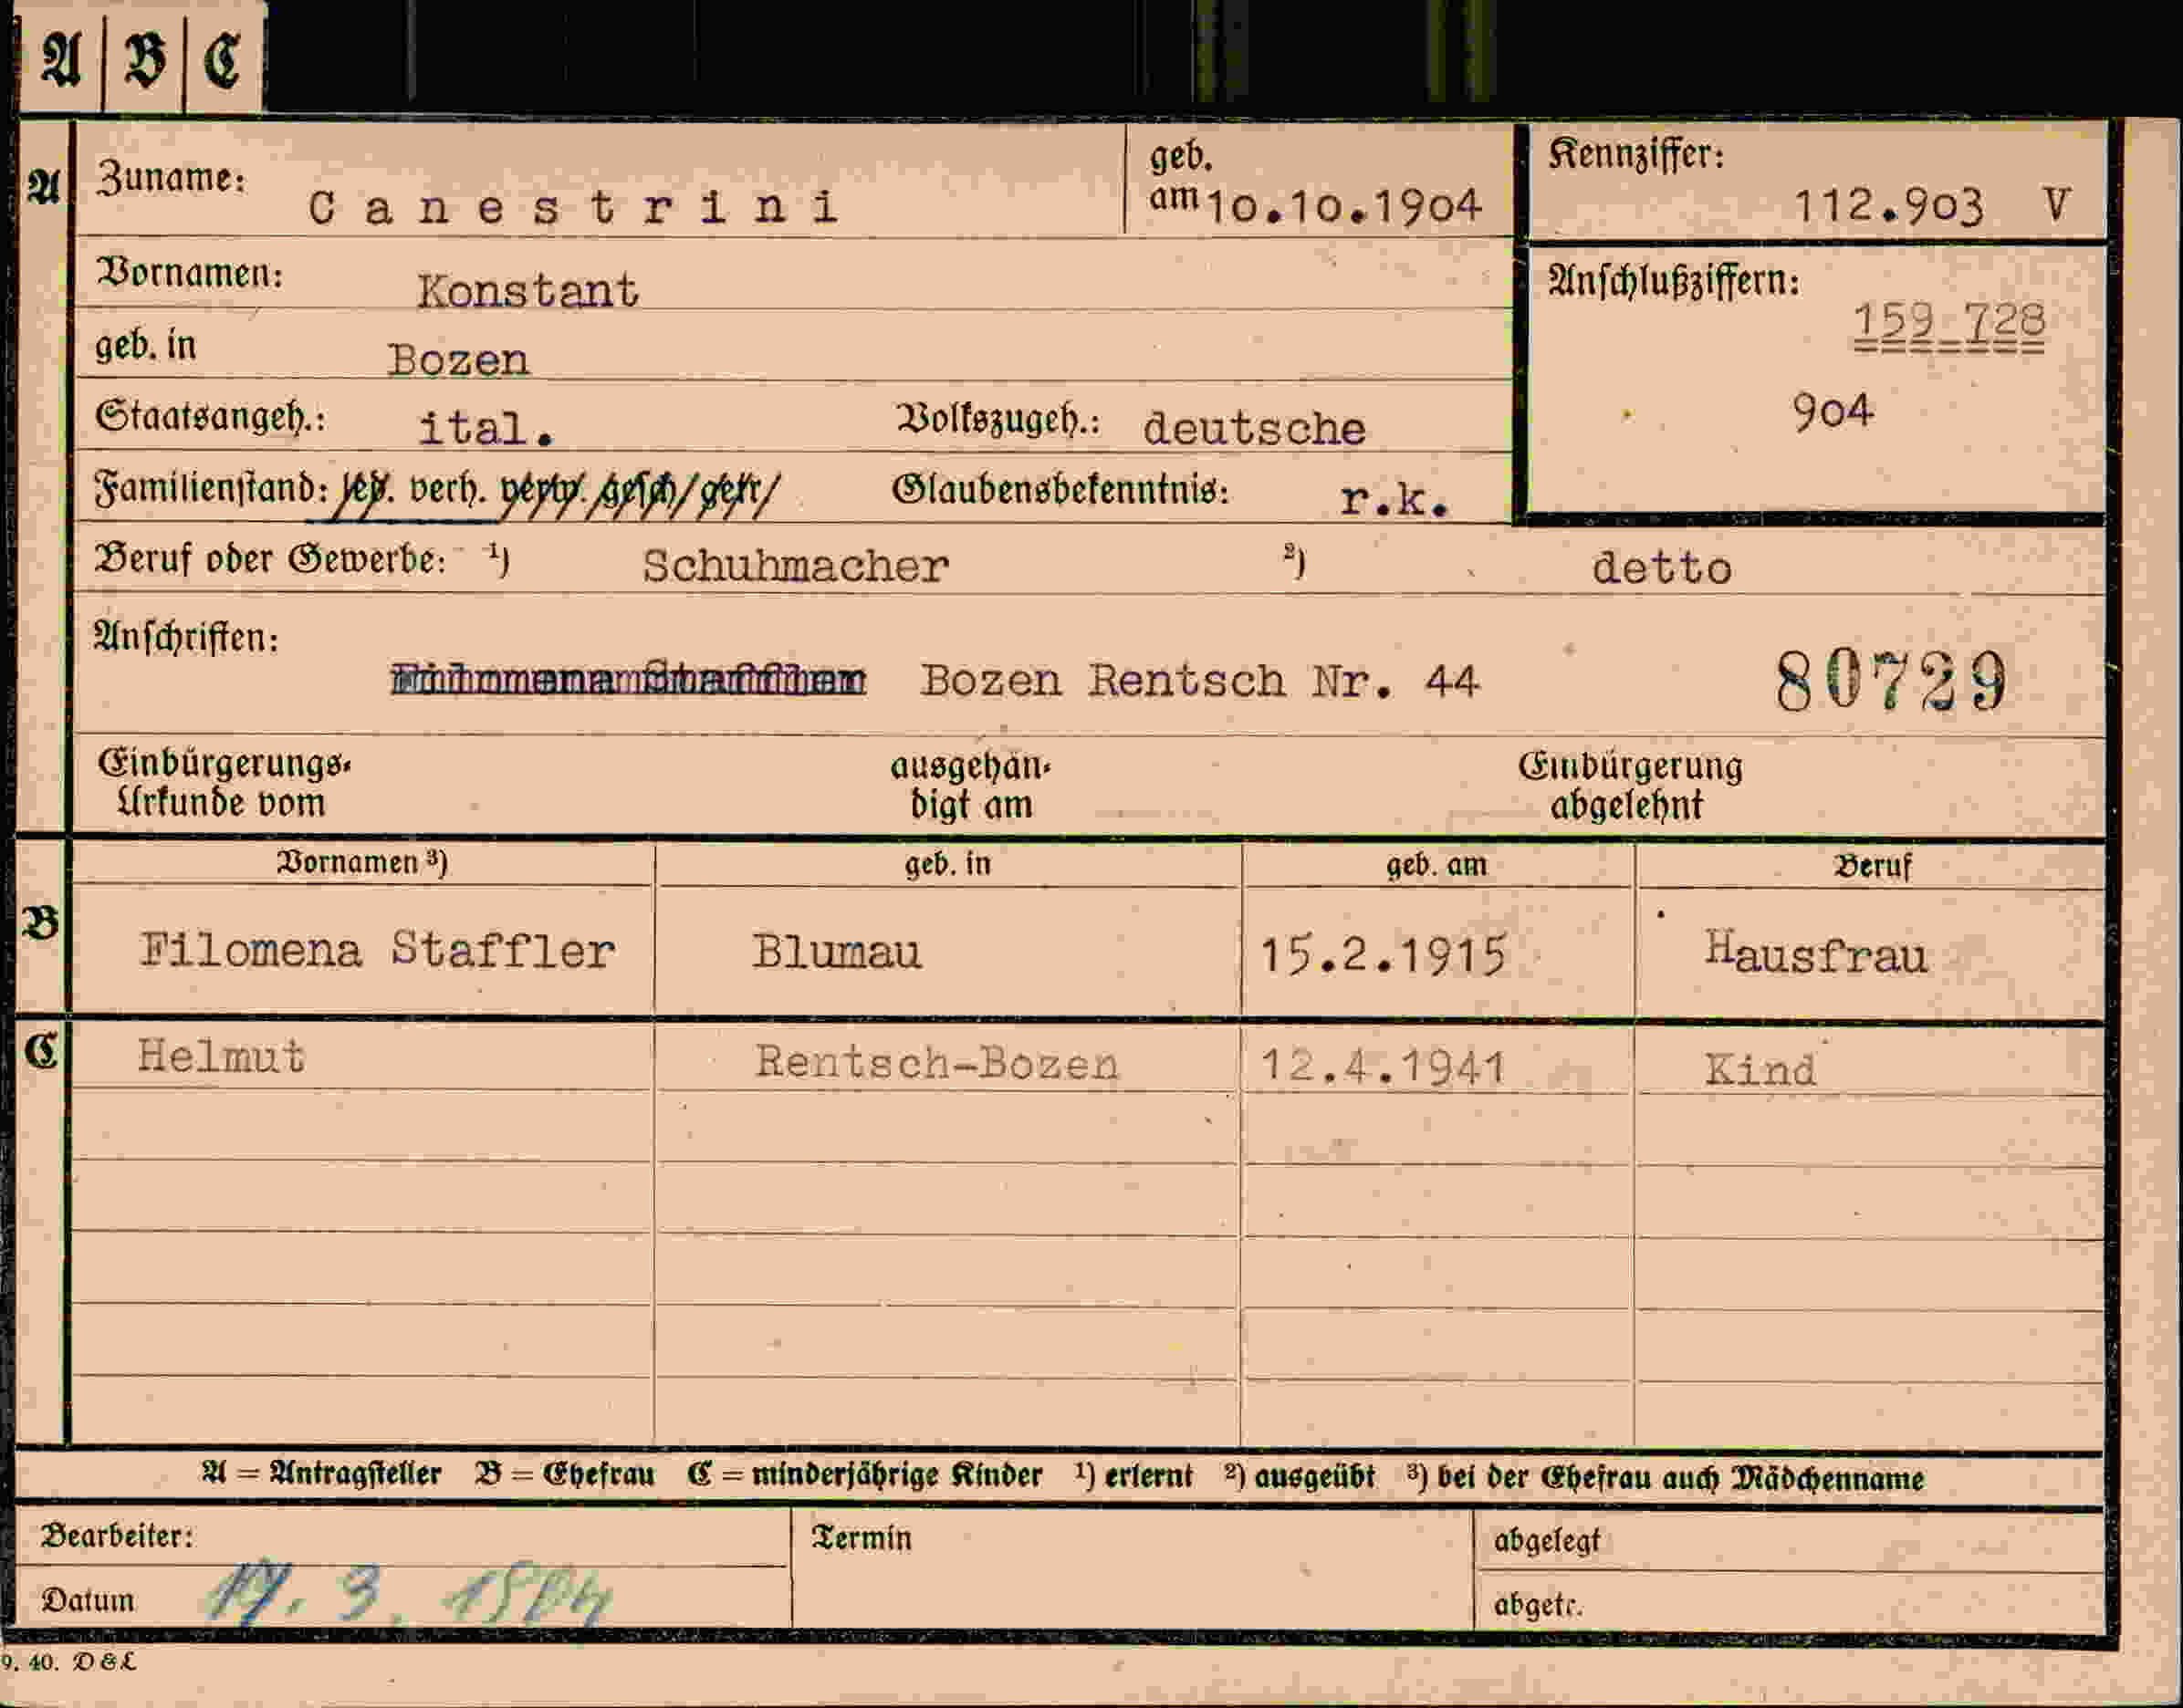 A B C
A Zuname: Canestrini geb. am 10.10.1904 Kennziffer: 112.903 V
Vornamen: Konstant Anschlußziffern: 159 728
geb. in Bozen 904
Staatsangeh.: ital. Volkszugeh.: deutsche
Familienstand: led. verh. verw. gesch/getr/ Glaubensbekenntnis: r.k.
Beruf oder Gewerbe: 1) Schuhmacher 2) detto
Anschriften:
Filomena Staffler Bozen Rentsch Nr. 44 80729
Einbürgerungs- ausgehän- Einbürgerung
Urkunde vom digt am abgelehnt
Vornamen 3) geb. in geb. am Beruf
B Filomena Staffler Blumau 15.2.1915 Hausfrau
C Helmut Rentsch-Bozen 12.4.1941 Kind
A = Antragsteller B = Ehefrau C = minderjährige Kinder 1) erlernt 2) ausgeübt 3) bei der Ehefrau auch Mädchenname
Bearbeiter: Termin abgelegt
Datum abgetr.
9. 40. D&L